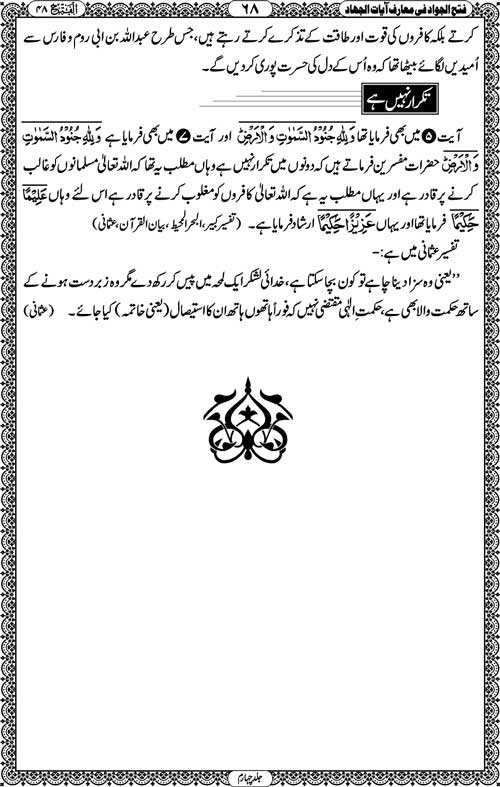 فتح الجواد فی معارف آیات الجهاد ۶۸ الفتح ۴۸
کرتے بلکہ کافروں کی قوت اور طاقت کے تذکرے کرتے رہتے ہیں، جس طرح عبداللہ بن ابی روم و فارس سے
اُمیدیں لگائے بیٹھا تھا کہ وہ اُس کے دل کی حسرت پوری کر دیں گے۔
تکرار نہیں ہے
آیت ۵ میں بھی فرمایا تھا وَلِلّٰهِ جُنُوْدُ السَّمٰوٰتِ وَالْاَرْضِ اور آیت ۷ میں بھی فرمایا ہے وَلِلّٰهِ جُنُوْدُ السَّمٰوٰتِ
وَالْاَرْضِ حضرات مفسرین فرماتے ہیں کہ دونوں میں تکرار نہیں ہے وہاں مطلب یہ تھا کہ اللہ تعالیٰ مسلمانوں کو غالب
کرنے پر قادر ہے اور یہاں مطلب یہ ہے کہ اللہ تعالیٰ کافروں کو مغلوب کرنے پر قادر ہے اس لئے وہاں عَلِیْمًا
حَكِیْمًا فرمایا تھا اور یہاں عَزِیْزًا حَكِیْمًا ارشاد فرمایا ہے۔ (تفسیر کبیر، البحر المحیط، بیان القرآن، عثمانی)
تفسیر عثمانی میں ہے:-
”یعنی وہ سزا دینا چاہے تو کون بچا سکتا ہے، خدائی لشکر ایک لمحہ میں پیس کر رکھ دے مگر وہ زبردست ہونے کے
ساتھ حکمت والا بھی ہے، حکمتِ الٰہی مقتضی نہیں کہ فوراً ہاتھوں ہاتھ ان کا استیصال (یعنی خاتمہ) کیا جائے۔ (عثمانی)
جلد چہارم